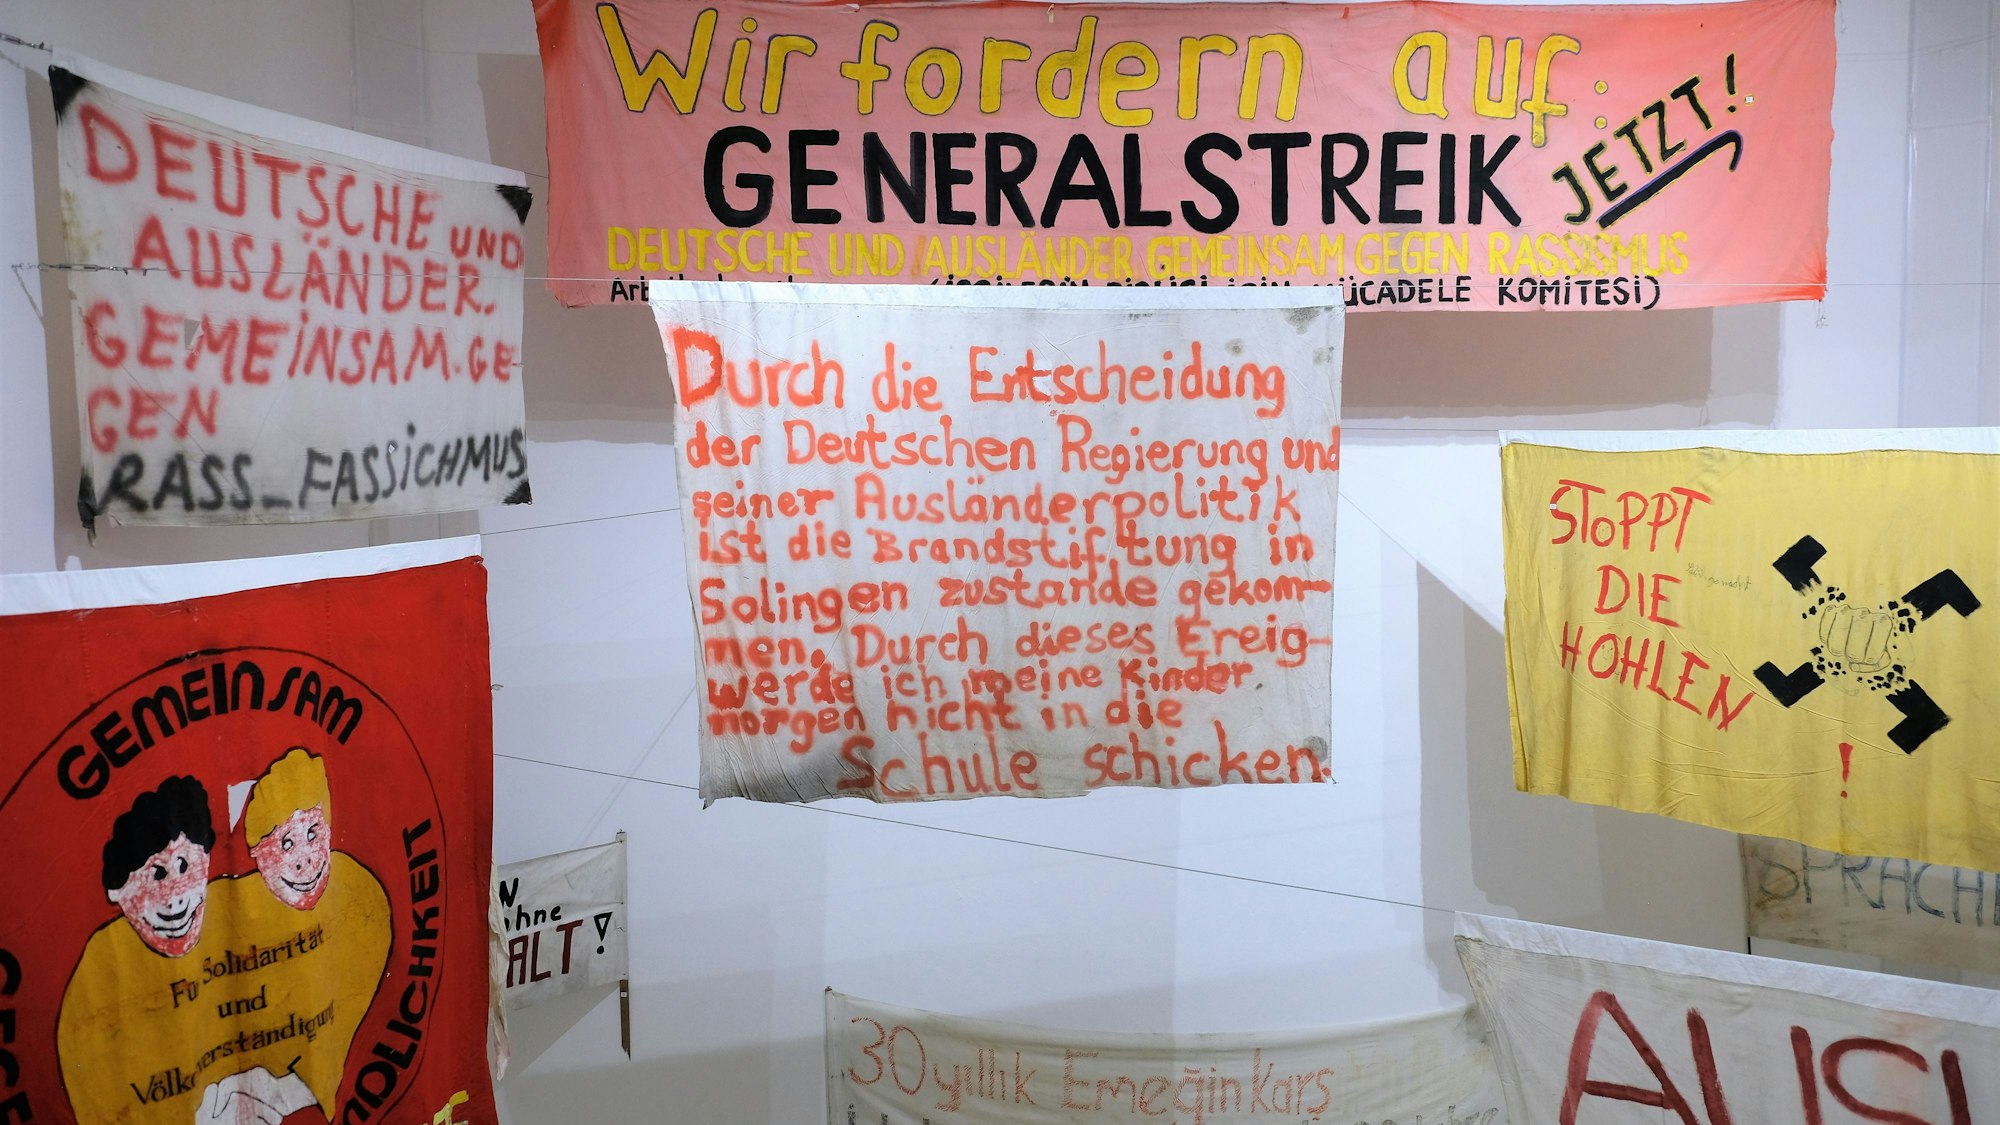 Wir fordern auf:
GENERALSTREIK JETZT!
DEUTSCHE UND AUSLÄNDER GEMEINSAM GEGEN RASSISMUS
MÜCADELE KOMİTESİ)
DEUTSCHE UND
AUSLÄNDER.
GEMEINSAM.GE-
GEN
RASS_FASSiCHMUS
Durch die Entscheidung
der Deutschen Regierung und
seiner Ausländerpolitik
ist die Brandstiftung in
Solingen zustande gekom-
men. Durch dieses Ereig-
werde ich meine Kinder
morgen nicht in die
Schule schicken.
STOPPT
DIE
HOHLEN
!
GEMEINSAM
NDLICHKEIT
Für Solidarität
und
Völkerverständigung
N
ohne
ALT!
SPRACH
30 yıllık Emeğin Kars
AUSL